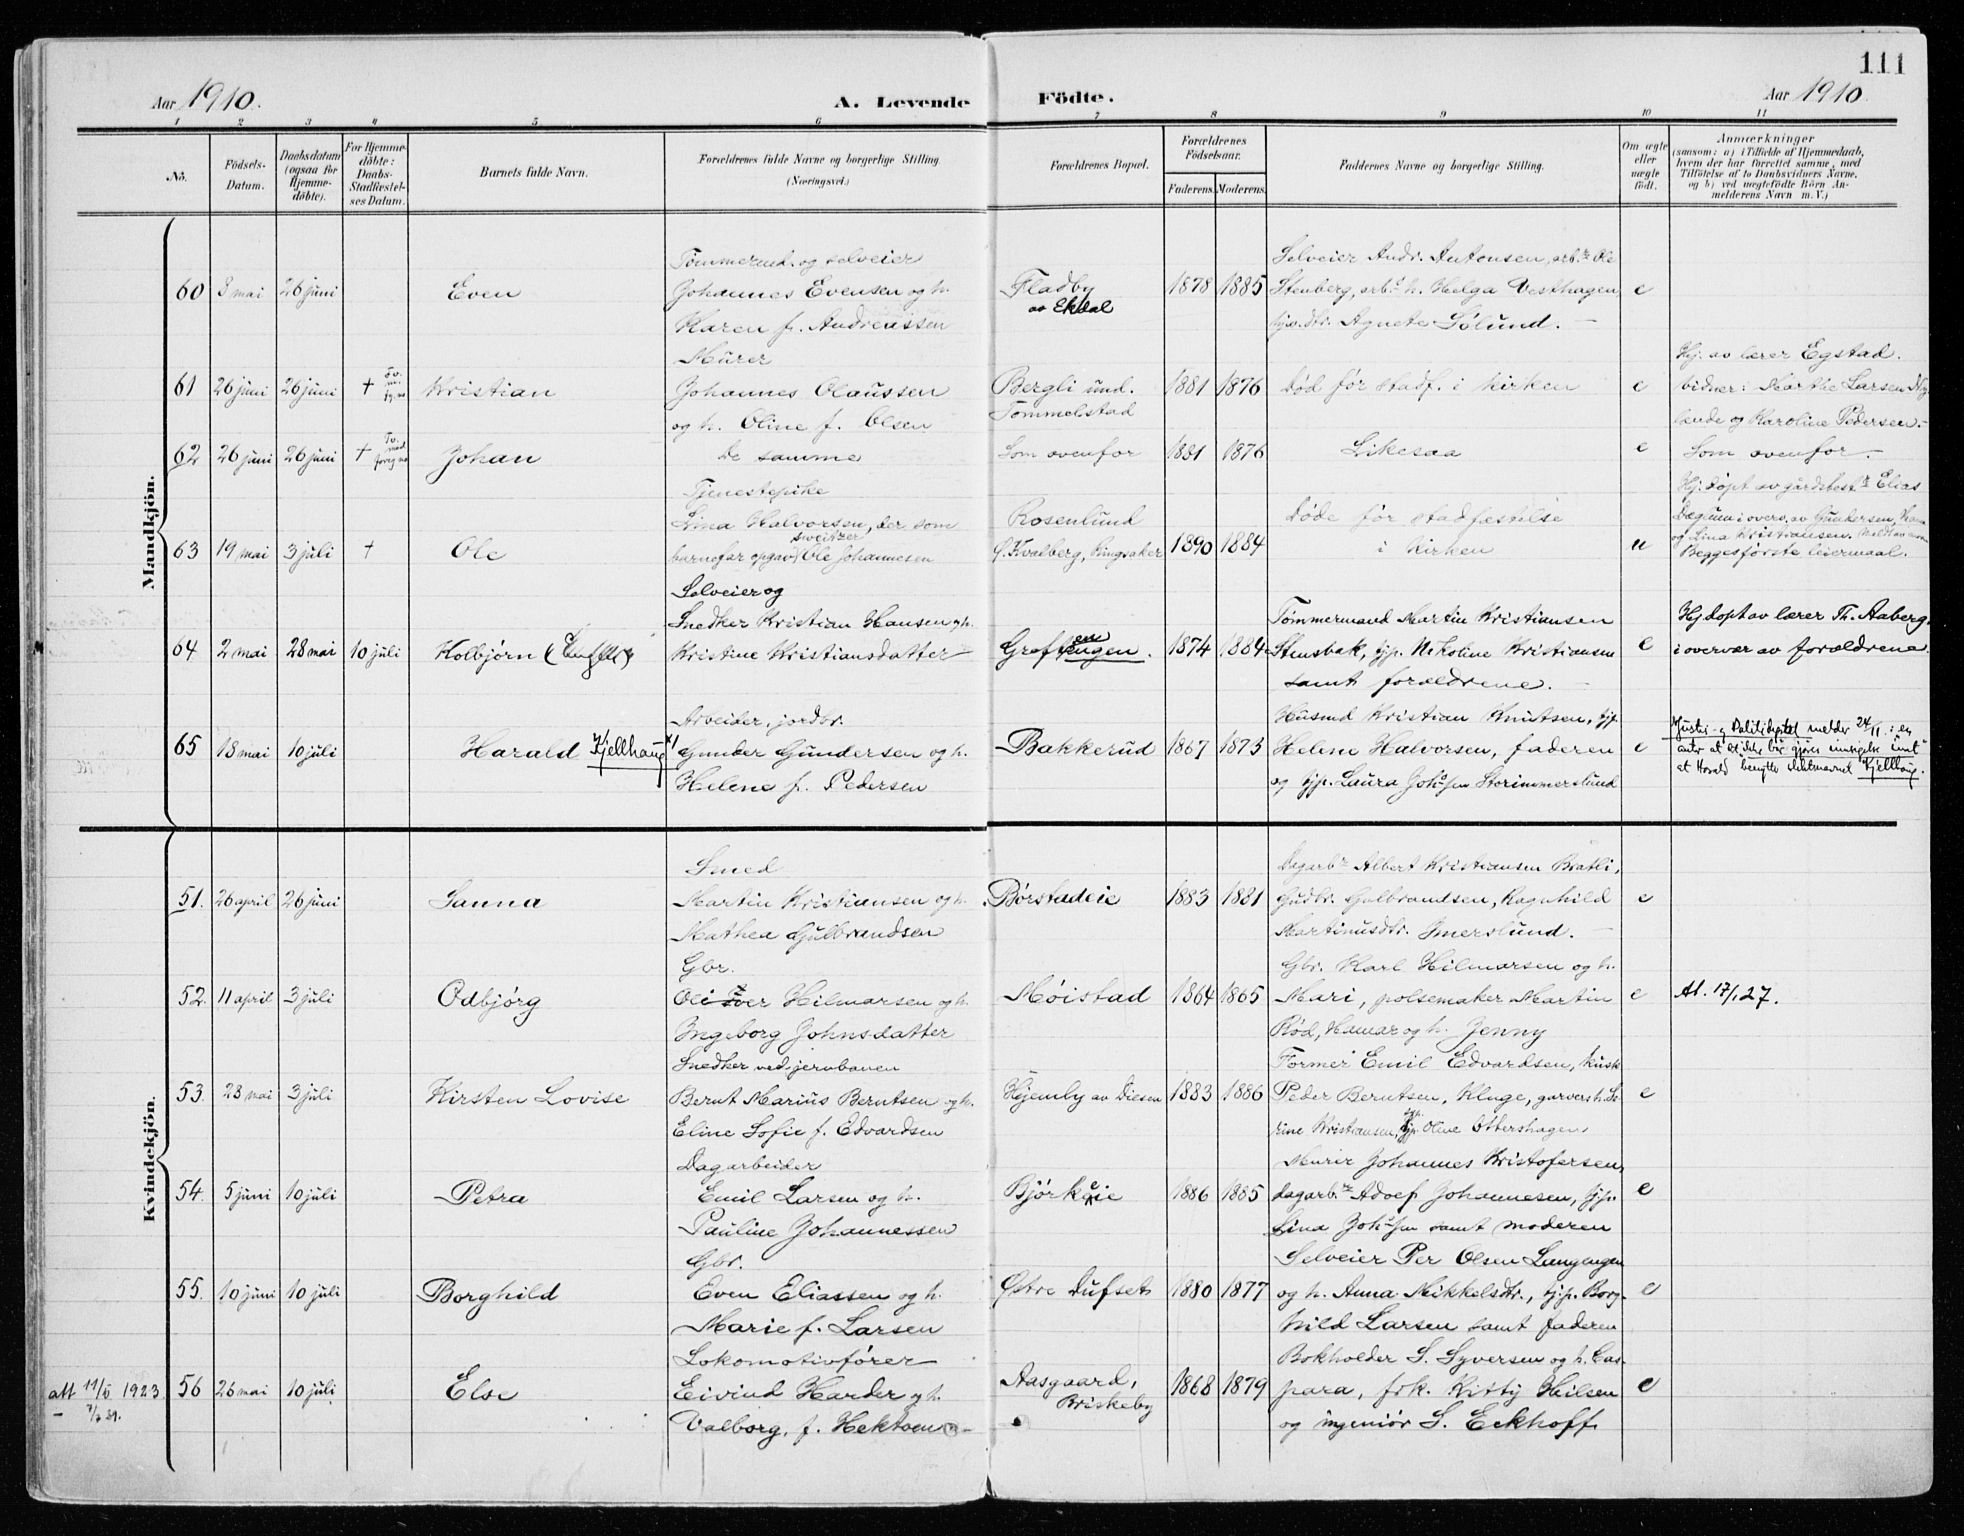 111
Aar 1910.
A. Levende Födte.
Aar 1910.
1 2 3 4 5 6 7 8 9 10 11
No.
Födsels-Datum.
Daabsdatum (ogsaa for Hjemme-döbte).
For Hjemme-döbte: Daabs-Stadfæstel-ses Datum.
Barnets fulde Navn.
Forældrenes fulde Navne og borgerlige Stilling.
(Næringsvei.)
Forældrenes Bopæl.
Forældrenes Födselsaar.
Faderens. Moderens.
Faddernes Navne og borgerlige Stilling.
Om ægte eller uægte födt.
Anmærkninger
(saasom: a) i Tilfælde af Hjemmedaab,
hvem der har forrettet samme, med
Tilföielse af to Daabsvidners Navne,
og b) ved uægtefödte Börn An-
melderens Navn m. V.)
Mandkjön.
Tømmermd. og selveier
60 3 mai 26 juni Even Johannes Evensen og h.
Karen f. Andreassen
Fladby
av Ekdal
1878 1885
Selveier Andr. Antonsen, arb.r Ole
Stenberg, arb.s h. Helga Vesthagen,
Agnete Sølund. e
Murer
61 26 juni 26 juni † Kristian Johannes Olaussen
og h. Oline f. Olsen
Bergli und.
Tommelstad
1881 1876 Død før stadf. i kirken e
Hj. av lærer Egstad.
vidner: Marthe Larsen Ny-
lende og Karoline Pedersen.
62 26 juni 26 juni † Johan De samme
Som ovenfor 1881 1876 Likesaa e Som ovenfor.
Tjenestepike
63 19 mai 3 juli † Ole Lina Halvorsen, der som
sveitzer
barnefar opgav Ole Johannesen
Rosenlund
Ø. Kvalberg, Ringsaker 1890 1884
Døde før stadfæstelse
i kirken u
Hj. døpt av gårdbest.r Elias
Dæglum i overv. av Gundersen
og Lina Kristiansen.
Begges første leiermaal.
Selveier og
64 2 mai 28 mai 10 juli Kolbjørn
Snedker Kristian Hansen og h.
Kristine Kristiansdatter
Grefsengen. 1874 1884
Tømmermand Martin Kristiansen
Stensbak, pp. Nikoline Kristiansen
samt forældrene. e
Hj. døpt av lærer Th. Aaberg.
i overvær av forældrene
Arbeider, jordbr.
65 18 mai 10 juli Harald Kjellhaug
Gunder Gundersen og h.
Helene f. Pedersen
Bakkerud 1867 1873
Husmd Kristian Knutsen,
Helene Halvorsen, faderen
og pp. Laura Storimmerslund e
Justis- og Politidept. melder 24/11 :
at Harald benytter slektsnavnet Kjellhaug.
Kvindekjön.
Smed
51. 26 april 26 juni Sanna Martin Kristiansen og h.
Mathea Gulbrandsen
Børstadeie 1883 1881
Dagarb.r Albert Kristiansen Bratli,
Gudbr. Gulbrandsen, Ragnhild
Martinusdtr. Imerslund. e
Gbr.
52. 11 april 3 juli Odbjørg Hilmarsen og h.
Ingeborg Johnsdatter
Møistad 1864 1865
Gbr. Karl Hilmarsen og h.
Mari, pølsemaker Martin
Rød, Hamar og h. Jenny e
At. 17/1 27.
Snedker ved jernbanen
53. 28 mai 3 juli Kirsten Lovise Bernt Marius Berntsen og h.
Eline Sofie f. Edvardsen
Hjemby av Diesen 1883 1886
Former Emil Edvardsen, kusk
Peder Berntsen, Kluge, garvers h. Se-
rine Kristiansen, pp. Oline Ottershagen. e
Dagarbeider
54. 5 juni 10 juli Petra Emil Larsen og h.
Pauline Johannessen
Bjørkeie 1886 1885
Murer Johannes Kristofersen,
dagarb.r Adolf Johannesen, pp.
Lina samt moderen e
Gbr.
55. 10 juni 10 juli Borghild Even Eliassen og h.
Marie f. Larsen
Østre Dufset 1880 1877
Selveier Per Olsen Lungengen
og h. Anna Mikkelsdtr., pp. Borg-
hild Larsen samt faderen e
Lokomotivfører
att 11/5 1923 56 26 mai 10 juli Else Eivind Harder og h.
Valborg, f. Hektoen
Aasgaard,
Briskeby
1868 1879
Bokholder S. Syversen og h. Cas-
para, frk. Kitty Nilsen
og ingeniør S. Eckhoff e